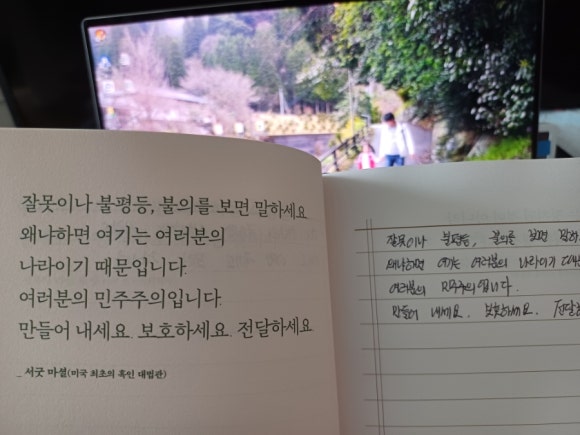 잘못이나 불평등, 불의를 보면 말하세요
왜냐하면 여기는 여러분의
나라이기 때문입니다.
여러분의 민주주의입니다.
만들어 내세요. 보호하세요. 전달하세요
_ 서굿 마셜(미국 최초의 흑인 대법관)
잘못이나 불평등, 불의를 보면 말하
왜냐하면 여기는 여러분의 나라이기 때
여러분의 민주주의입니다.
만들어 내세요. 보호하세요. 전달하